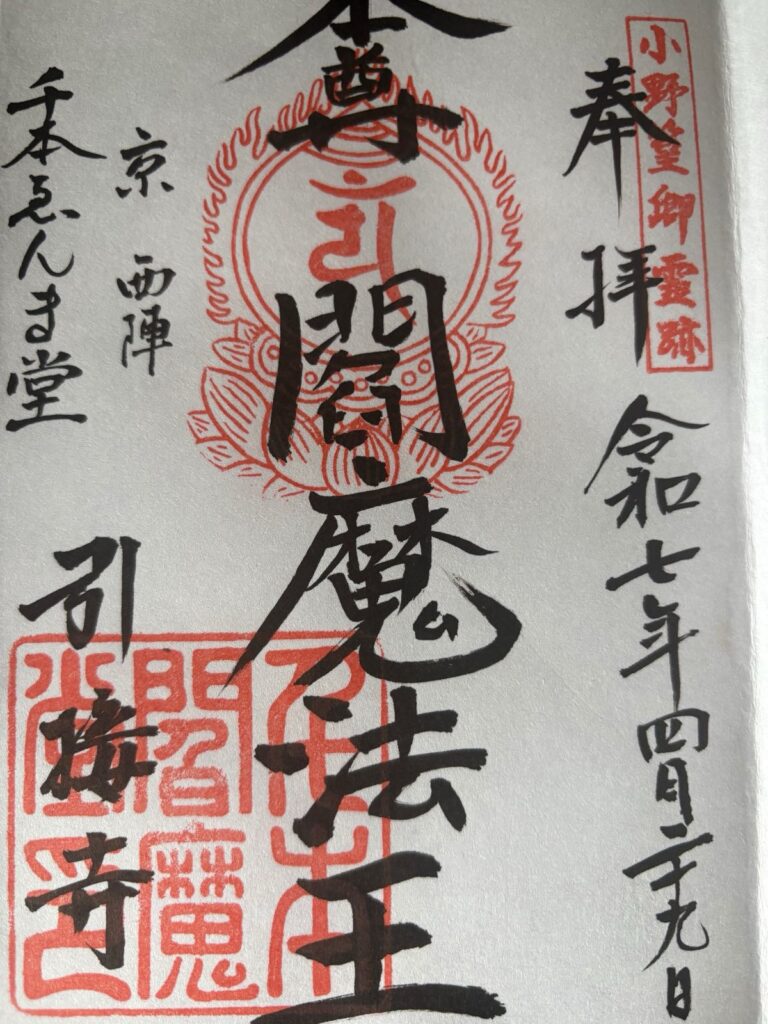 小野篁卿霊跡
奉拝
令和七年四月二十九日
本尊
閻魔法王
京西陣
千本ゑんま堂
引接寺
千本
閻魔
堂印